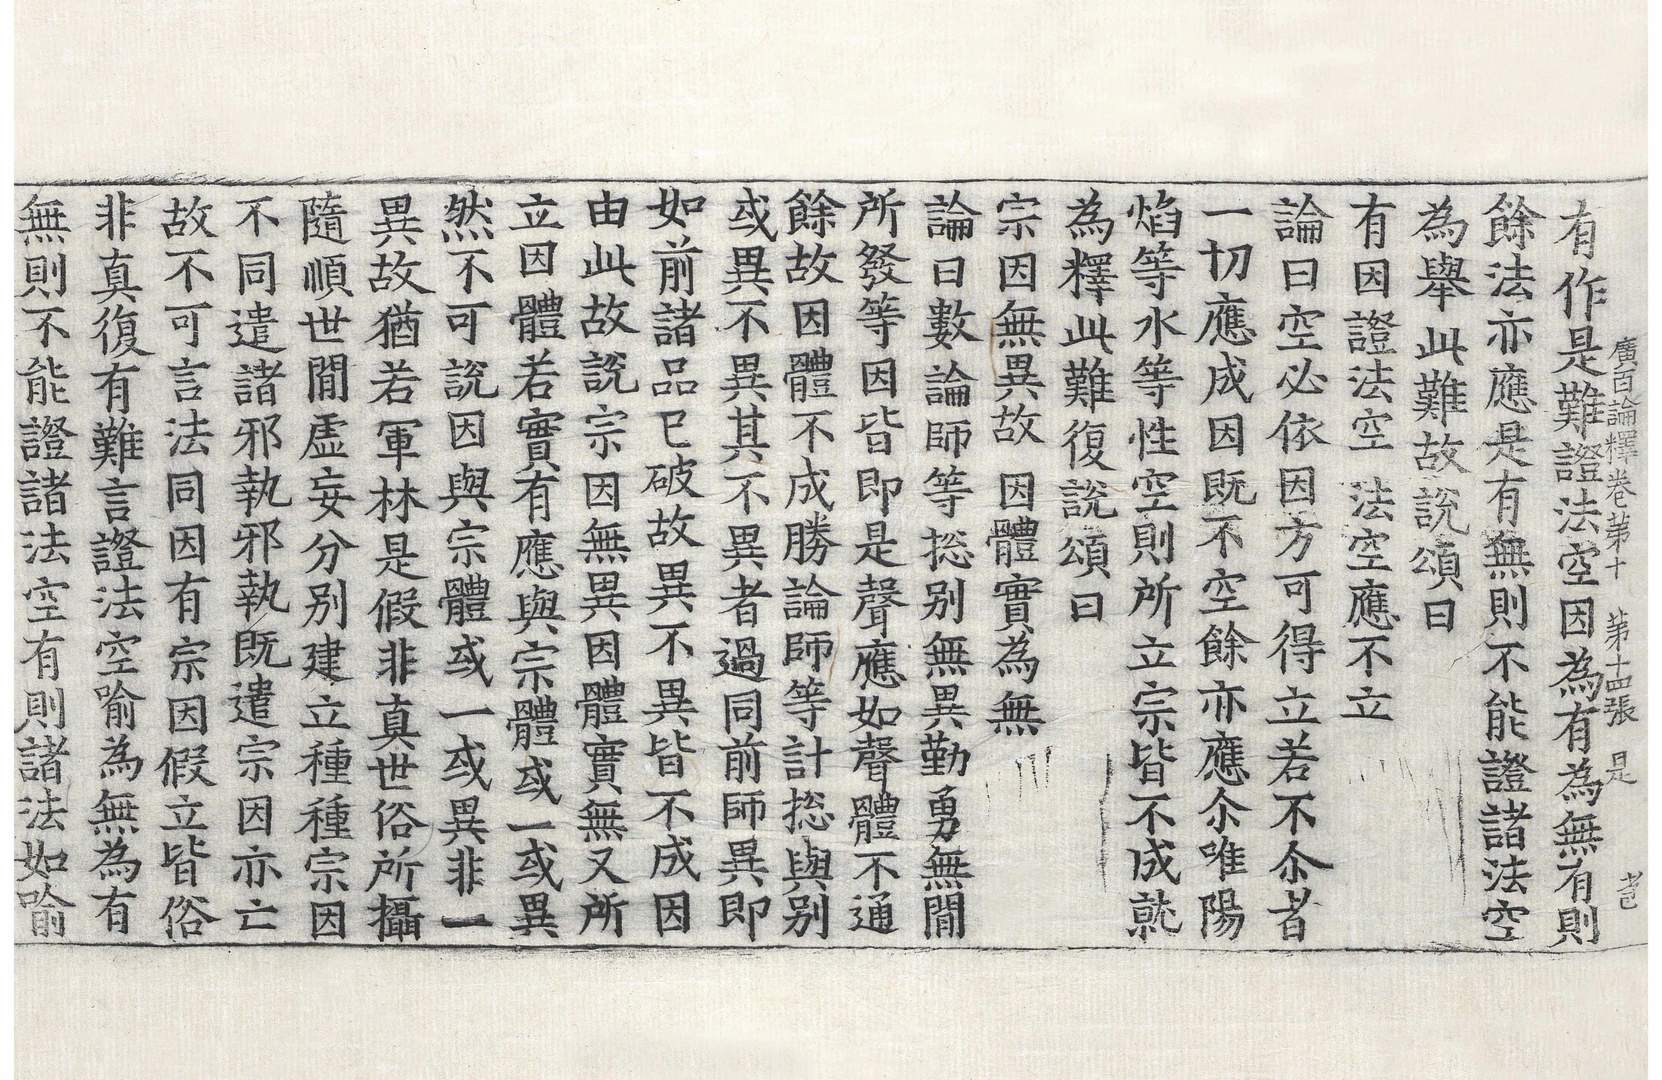 廣百論釋卷第十 第十四張 是
有作是難證法空因為有為無有則
餘法亦應是有無則不能證諸法空
為舉此難故說頌曰
有因證法空 法空應不立
論曰空必依因方可得立若不尒者
一切應成因既不空餘亦應尒唯陽
焰等水等性空則所立宗皆不成就
為釋此難復說頌曰
宗因無異故 因體實為無
論曰數論師等捴別無異勤勇無閒
所發等因皆即是聲應如聲體不通
餘故因體不成勝論師等計捴與別
或異不異其不異者過同前師異即
如前諸品已破故異不異皆不成因
由此故說宗因無異因體實無又所
立因體若實有應與宗體或一或異
然不可說因與宗體或一或異非一
異故猶若軍林是假非真世俗所攝
隨順世閒虛妄分別建立種種宗因
不同遣諸邪執邪執既遣宗因亦亡
故不可言法同因有宗因假立皆俗
非真復有難言證法空喻為無為有
無則不能證諸法空有則諸法如喻